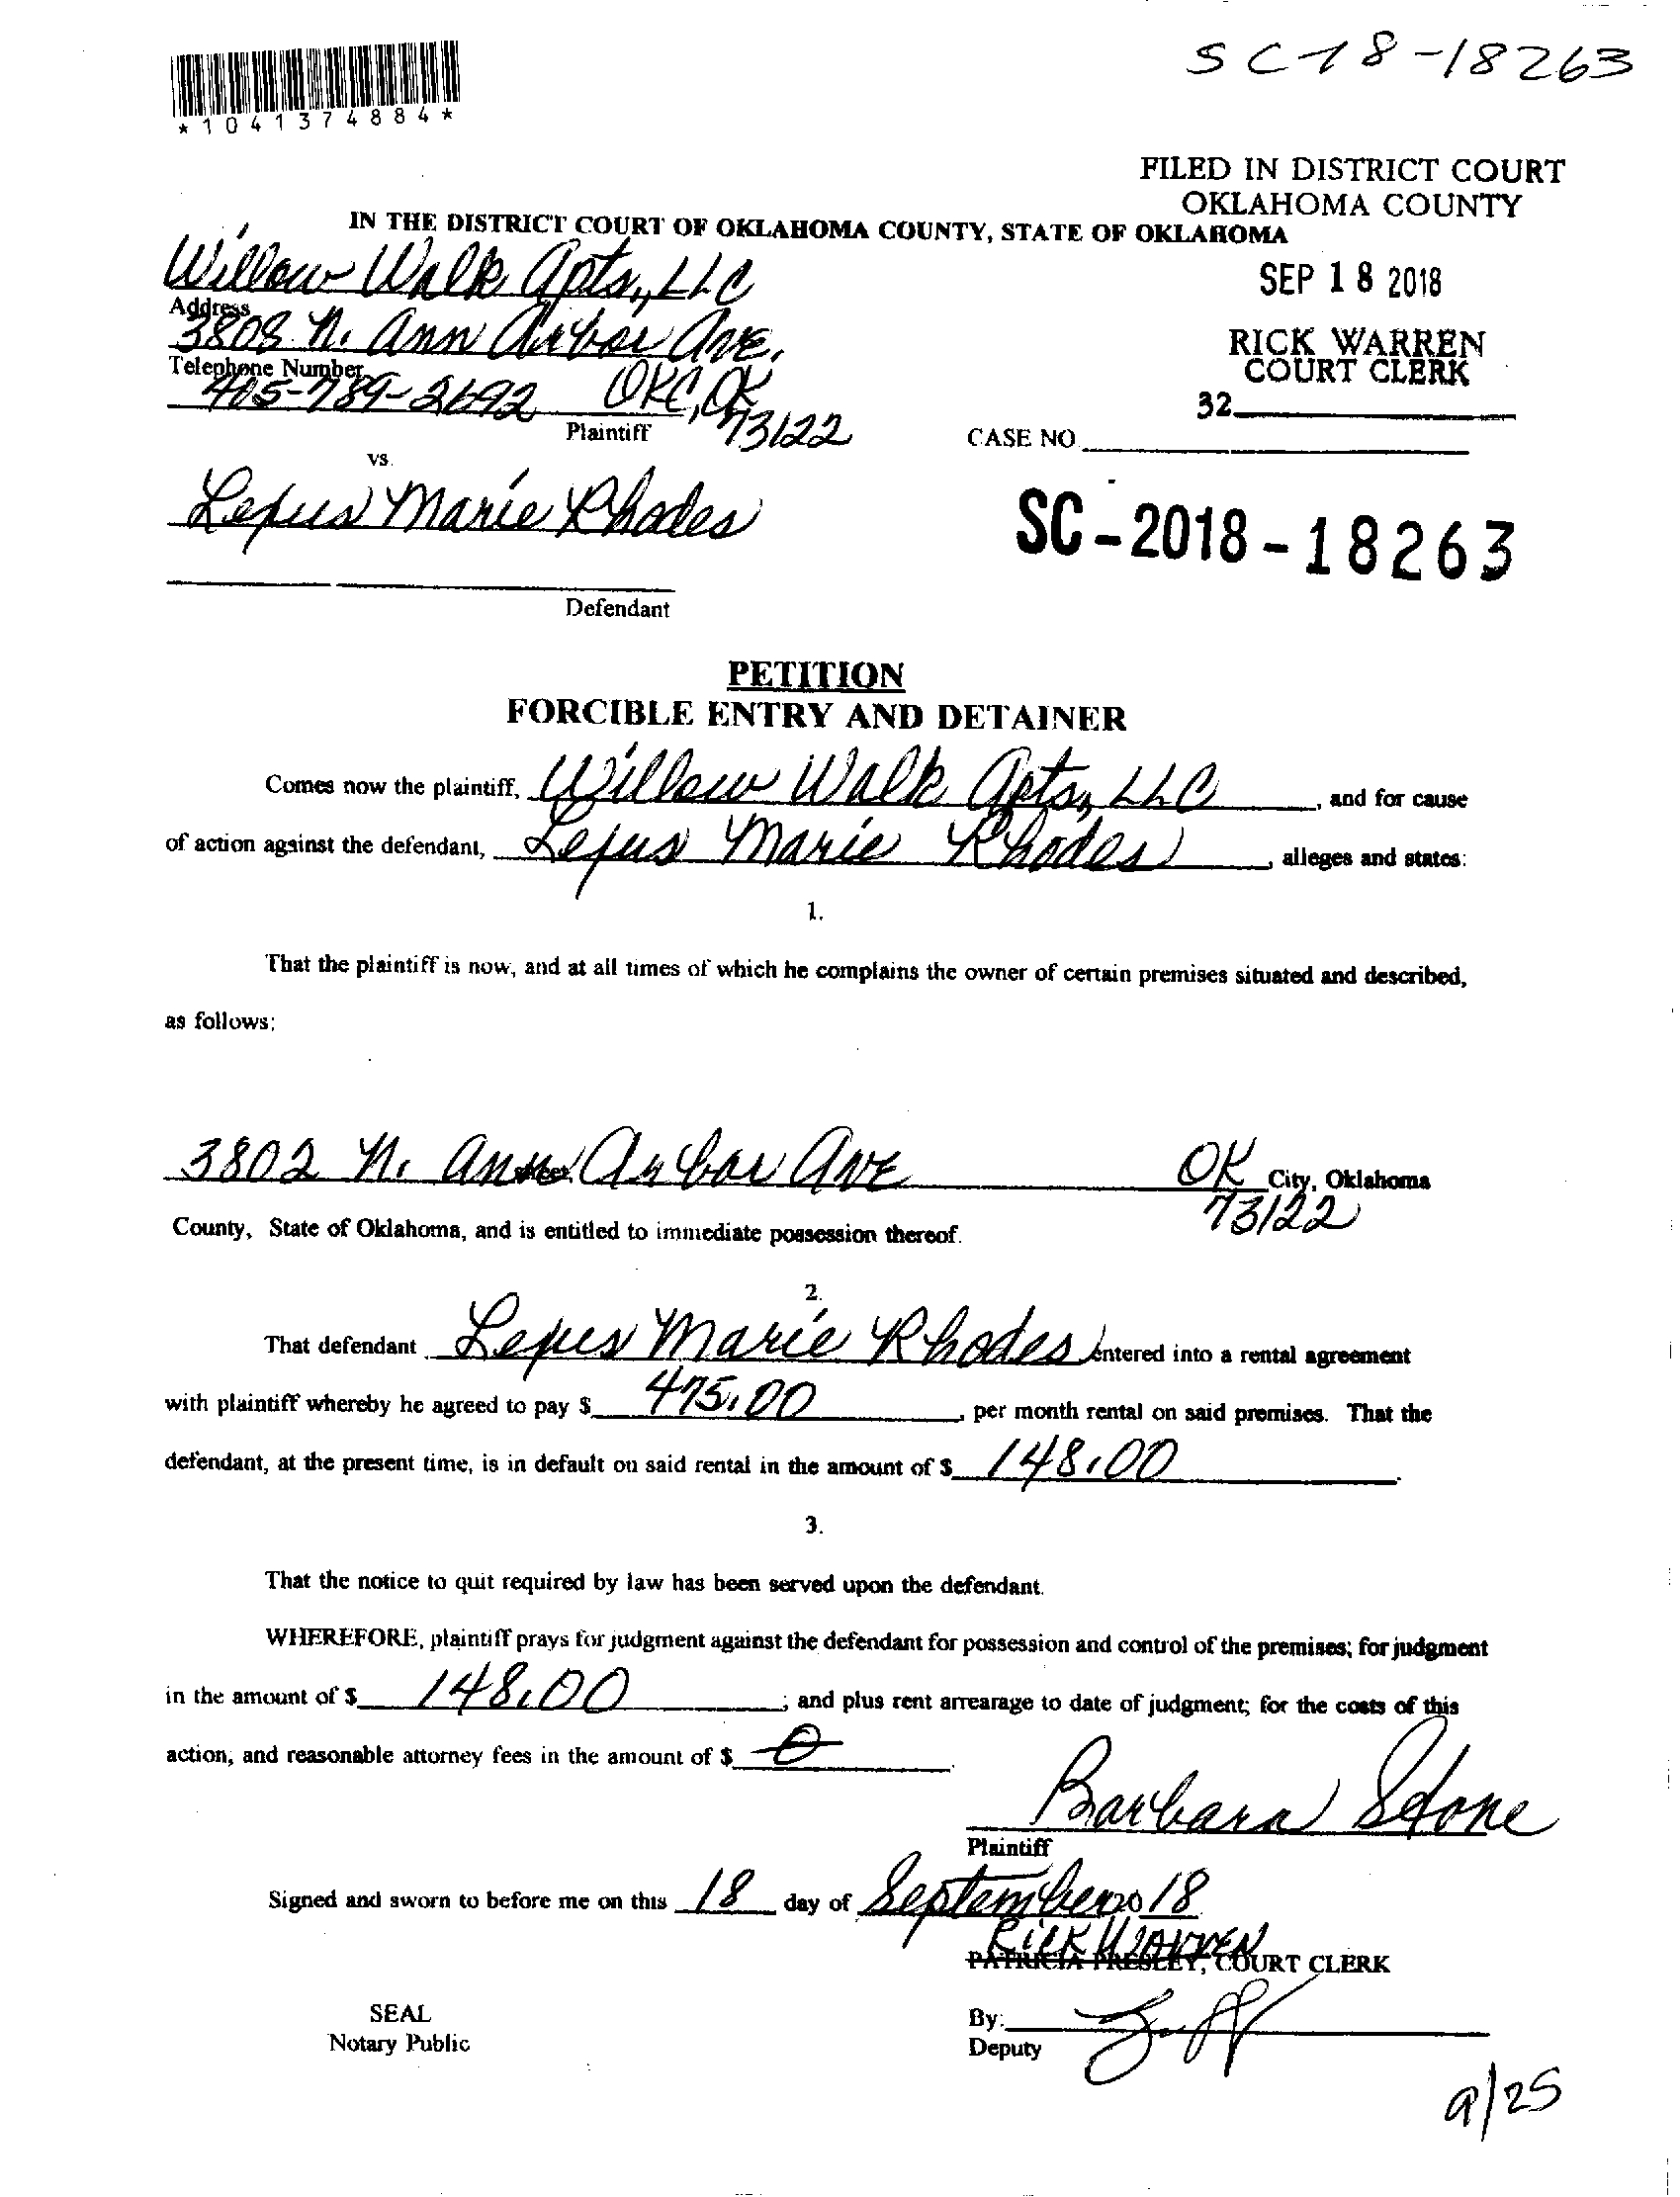 SC18-18263
*1041374884*
FILED IN DISTRICT COURT
OKLAHOMA COUNTY
IN THE DISTRICT COURT OF OKLAHOMA COUNTY, STATE OF OKLAHOMA
Willow Walk Apts, LLC
SEP 18 2018
Address
3808 N. Ann Arbor Ave.
RICK WARREN
COURT CLERK
Telephone Number
405-789-2692 OKC, OK
73122
32
Plaintiff
CASE NO.
vs.
Marie Rhodes
SC-2018-18263
Defendant
PETITION
FORCIBLE ENTRY AND DETAINER
Comes now the plaintiff, Willow Walk Apts, LLC, and for cause
of action against the defendant, Marie Rhodes, alleges and states:
1.
That the plaintiff is now, and at all times of which he complains the owner of certain premises situated and described,
as follows:
3802 N. Ann Arbor Ave OK City, Oklahoma
73122
County, State of Oklahoma, and is entitled to immediate possession thereof.
2.
That defendant Marie Rhodes entered into a rental agreement
with plaintiff whereby he agreed to pay $ 475.00, per month rental on said premises. That the
defendant, at the present time, is in default on said rental in the amount of $ 148.00.
3.
That the notice to quit required by law has been served upon the defendant.
WHEREFORE, plaintiff prays for judgment against the defendant for possession and control of the premises; for judgment
in the amount of $ 148.00; and plus rent arrearage to date of judgment; for the costs of this
action, and reasonable attorney fees in the amount of $ 0.
Barbara Stone
Plaintiff
Signed and sworn to before me on this 18 day of September 2018
Rick Warren
PATRICIA PRESLEY, COURT CLERK
SEAL
Notary Public
By:
Deputy
9/25